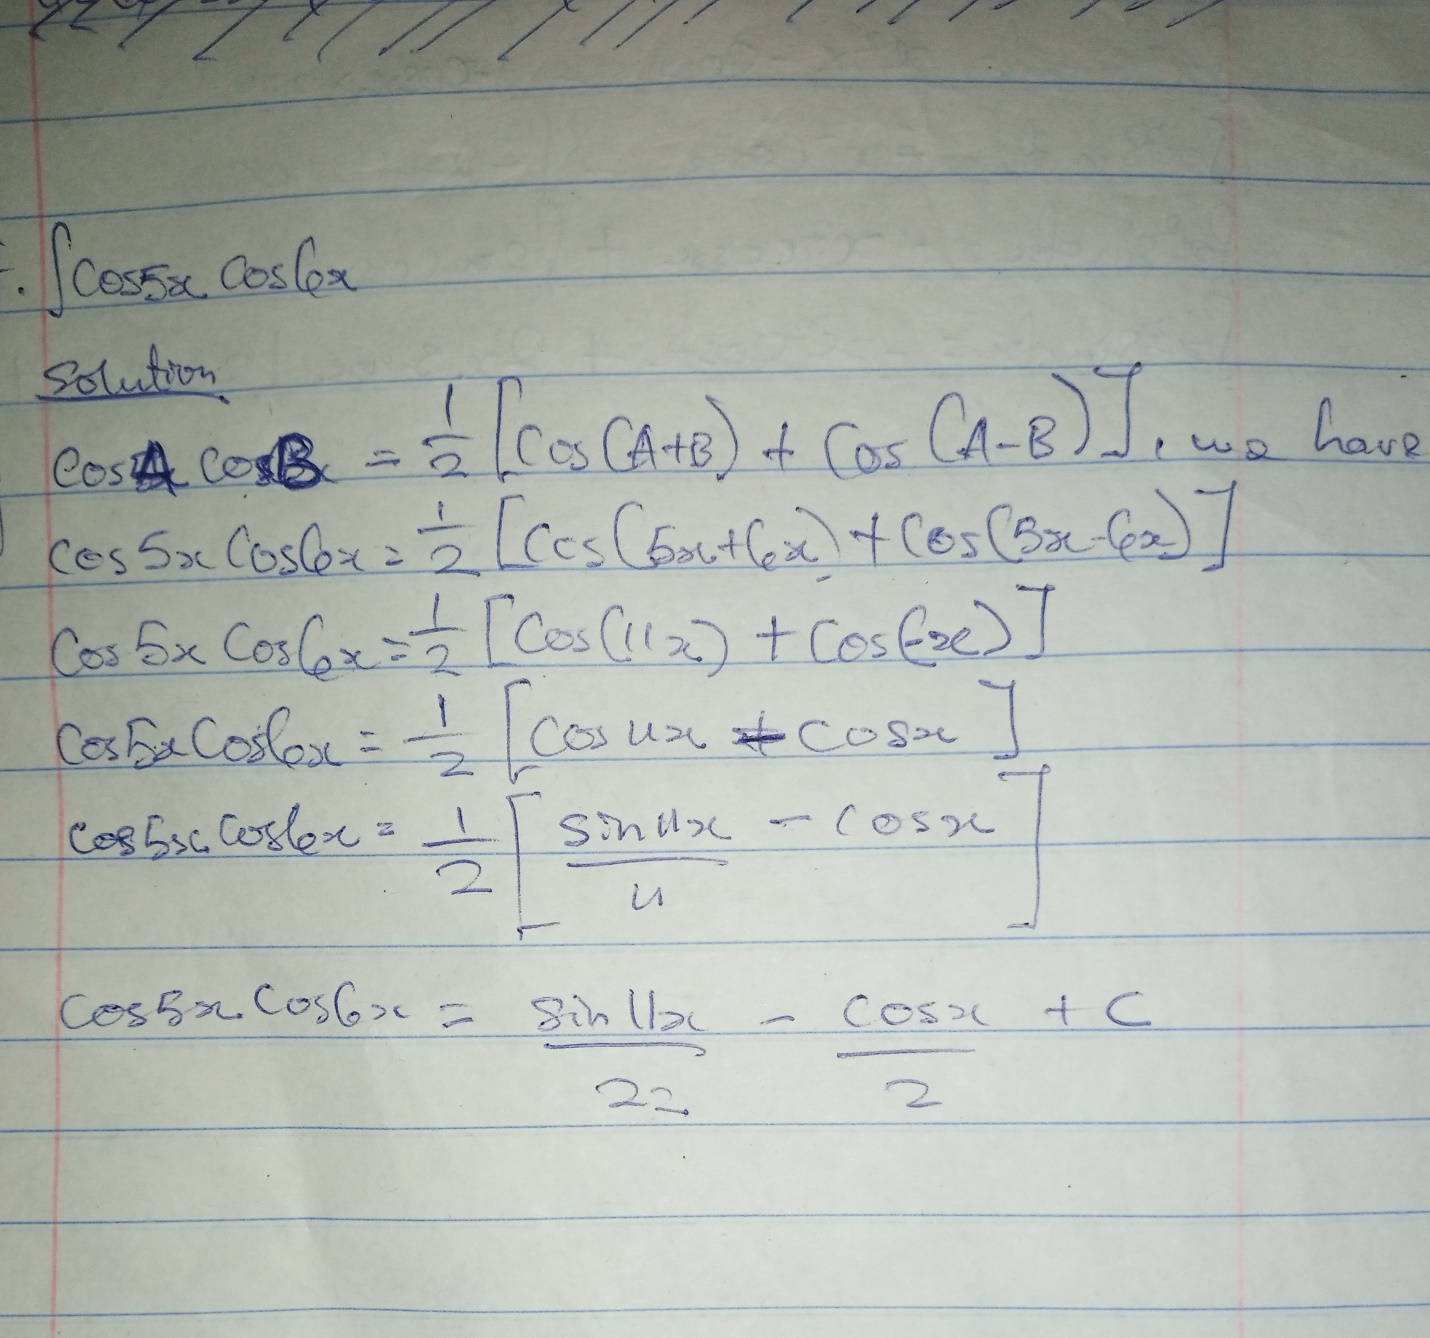 ∫cos5x cos6x
Solution
cosA cosB = 1/2 [cos(A+B) + cos(A-B)], we have
cos5x cos6x = 1/2 [cos(5x+6x) + cos(5x-6x)]
cos5x cos6x = 1/2 [cos(11x) + cos(-x)]
cos5x cos6x = 1/2 [cos 11x - cosx]
cos5x cos6x = 1/2 [sin11x/11 - cosx]
cos5x cos6x = sin11x/22 - cosx/2 + C